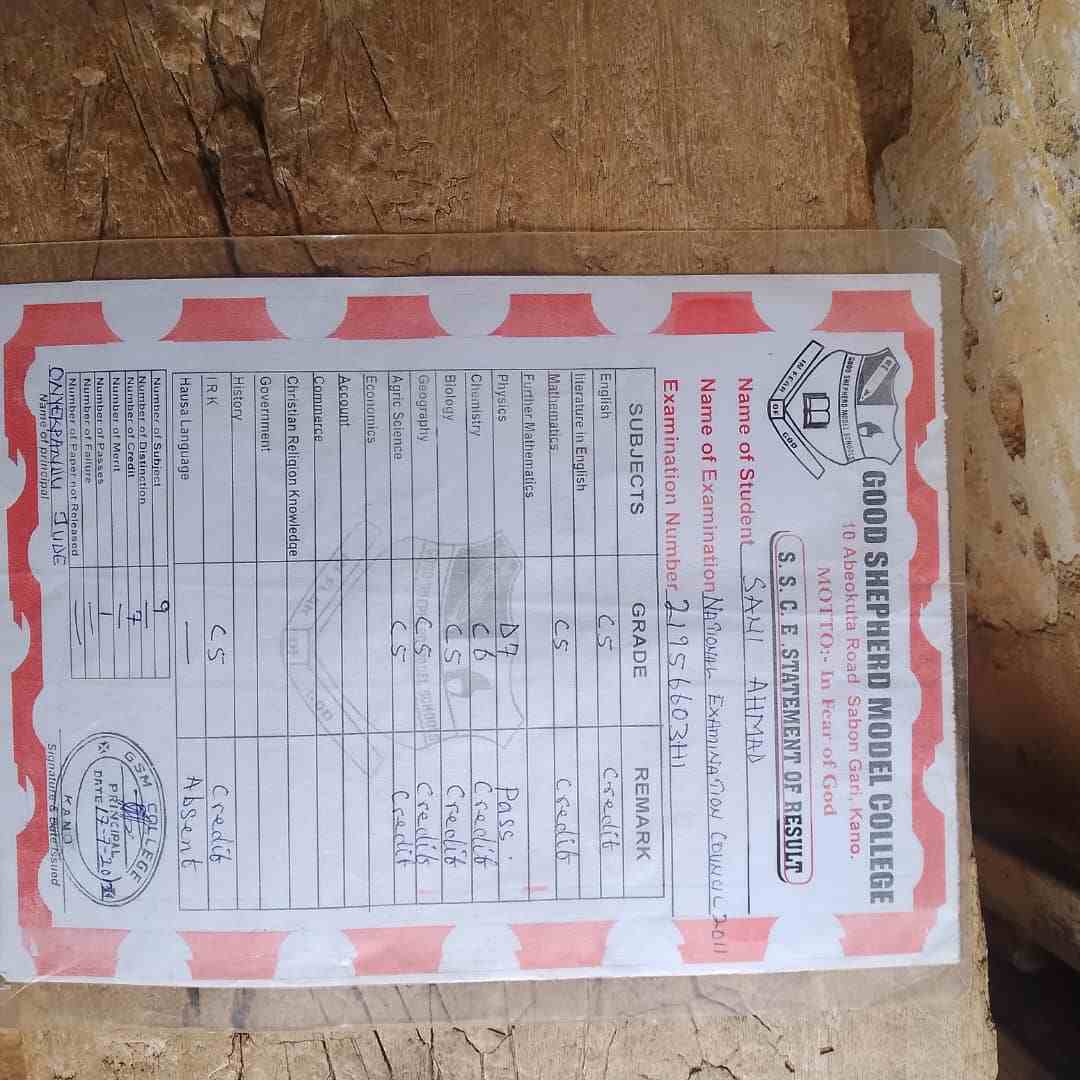 GOOD SHEPHERD MODEL SCHOOLS
IN FEAR OF GOD
GOOD SHEPHERD MODEL COLLEGE
10 Abeokuta Road Sabon Gari, Kano.
MOTTO:- In Fear of God
S. S. C. E. STATEMENT OF RESULT
Name of Student SANI AHMAD
Name of Examination NATIONAL EXAMINATION COUNCIL 2011
Examination Number 21956603HI
SUBJECTS GRADE REMARK
English C5 Credit
literature in English
Mathematics C5 Credit
Further Mathematics
Physics D7 Pass.
Chemistry C6 Credit
Biology C5 Credit
Geography C5 Credit
Agric Science C5 Credit
Economics
Account
Commerce
Christian Religion Knowledge
Government
History
I.R.K C5 Credit
Hausa Language — Absent
Number of Subject 9
Number of Distinction —
Number of Credit 7
Number of Merit —
Number of Passes 1
Number of Failure —
Number of Paper not Released —
JUDE
Name of principal
GSM COLLEGE
PRINCIPAL
DATE 17-7-20
KANO
Signature & Date Issued